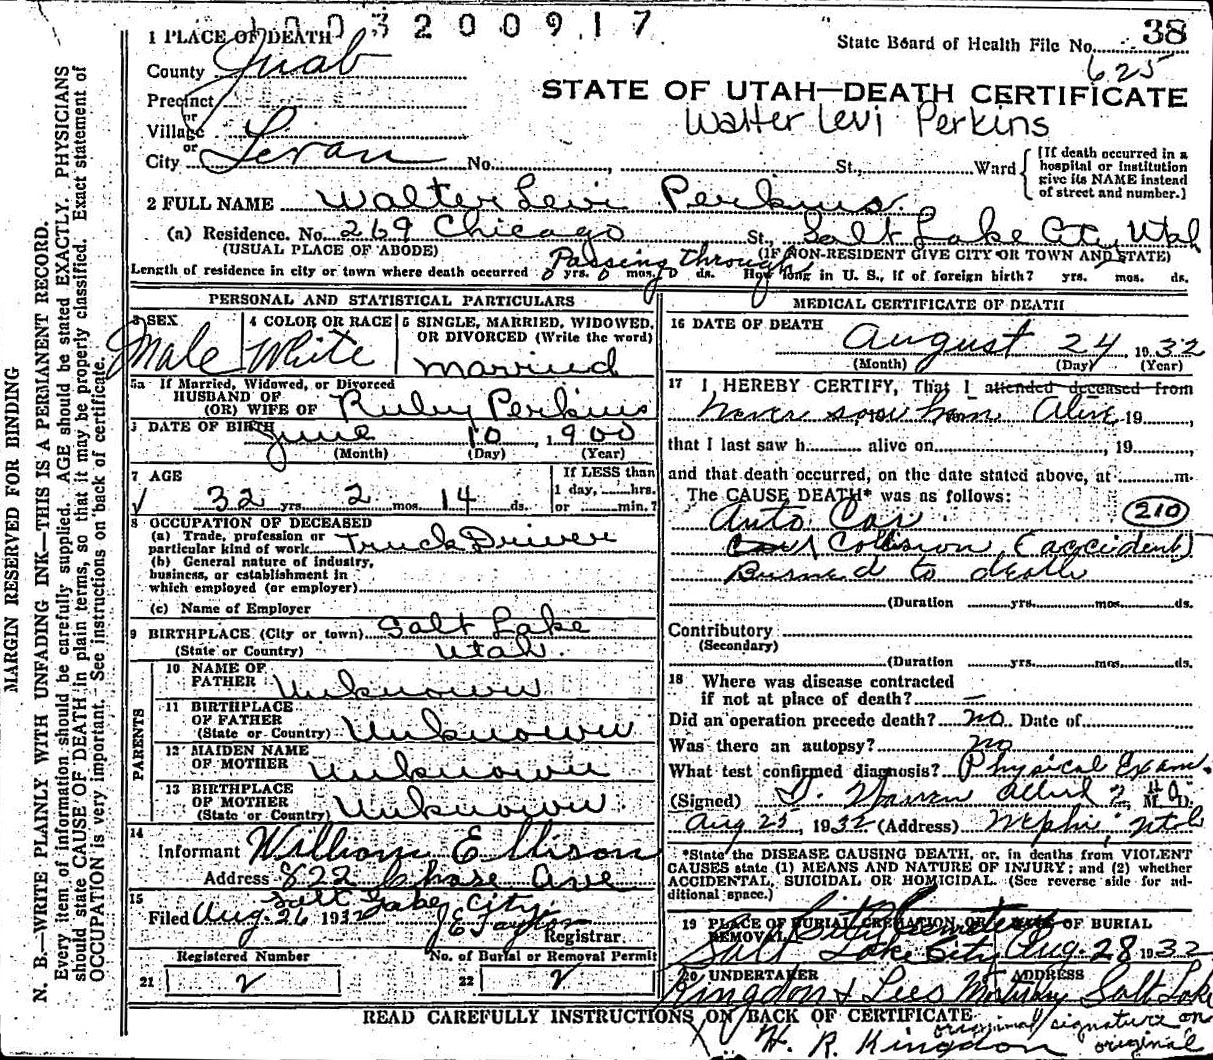 1003200917
1 PLACE OF DEATH
State Board of Health File No. 38
County Juab
625
STATE OF UTAH—DEATH CERTIFICATE
Precinct
or
Village
Walter Levi Perkins
or
City Levan No. St., Ward
[If death occurred in a hospital or institution give its NAME instead of street and number.]
2 FULL NAME Walter Levi Perkins
(a) Residence. No. 269 Chicago St., Salt Lake City Utah
(USUAL PLACE OF ABODE) (IF NON-RESIDENT GIVE CITY OR TOWN AND STATE)
Passing through
Length of residence in city or town where death occurred 0 yrs. 0 mos. 0 ds. How long in U. S., if of foreign birth? yrs. mos. ds.
PERSONAL AND STATISTICAL PARTICULARS
3 SEX 4 COLOR OR RACE 5 SINGLE, MARRIED, WIDOWED, OR DIVORCED (Write the word)
Male White Married
5a If Married, Widowed, or Divorced
HUSBAND OF
(OR) WIFE OF Ruby Perkins
DATE OF BIRTH June 10, 1900
(Month) (Day) (Year)
7 AGE If LESS than
1 day, hrs.
32 yrs. 2 mos. 14 ds. or min.?
8 OCCUPATION OF DECEASED
(a) Trade, profession or
particular kind of work Truck Driver
(b) General nature of industry,
business, or establishment in
which employed (or employer)
(c) Name of Employer
9 BIRTHPLACE (City or town) Salt Lake
(State or Country) Utah.
PARENTS
10 NAME OF
FATHER Unknown
11 BIRTHPLACE
OF FATHER
(State or Country) Unknown
12 MAIDEN NAME
OF MOTHER Unknown
13 BIRTHPLACE
OF MOTHER
(State or Country) Unknown.
14
Informant William Ellison
Address 822 Chase Ave
Salt Lake City.
15
Filed Aug. 26 1932 J E Taylor
Registrar
Registered Number No. of Burial or Removal Permit
21 2 22 2
MEDICAL CERTIFICATE OF DEATH
16 DATE OF DEATH
August 24 1932
(Month) (Day) (Year)
17 I HEREBY CERTIFY, That I attended deceased from
never saw him Alive 19
that I last saw h alive on , 19
and that death occurred, on the date stated above, at m.
The CAUSE DEATH* was as follows:
Auto Car (210)
Collision (accident)
Burned to death
(Duration yrs. mos. ds.
Contributory
(Secondary)
(Duration yrs. mos. ds.
18 Where was disease contracted
if not at place of death? —
Did an operation precede death? no Date of
Was there an autopsy? no
What test confirmed diagnosis? Physical Exam.
(Signed) Warren M. D.
Aug 25, 1932 (Address) Nephi, Utah
*State the DISEASE CAUSING DEATH, or, in deaths from VIOLENT
CAUSES state (1) MEANS AND NATURE OF INJURY; and (2) whether
ACCIDENTAL, SUICIDAL OR HOMICIDAL. (See reverse side for ad-
ditional space.)
19 PLACE OF BURIAL CREMATION, OR REMOVAL DATE OF BURIAL
City Cemetery
Salt Lake City Aug. 28 1932
20 UNDERTAKER ADDRESS
Kingdon & Lees Mortuary Salt Lake
READ CAREFULLY INSTRUCTIONS ON BACK OF CERTIFICATE
H. R. Kingdon original signature on
original
MARGIN RESERVED FOR BINDING
N. B.—WRITE PLAINLY WITH UNFADING INK—THIS IS A PERMANENT RECORD.
Every item of information should be carefully supplied. AGE should be stated EXACTLY. PHYSICIANS
should state CAUSE OF DEATH in plain terms, so that it may be properly classified. Exact statement of
OCCUPATION is very important. See instructions on back of certificate.